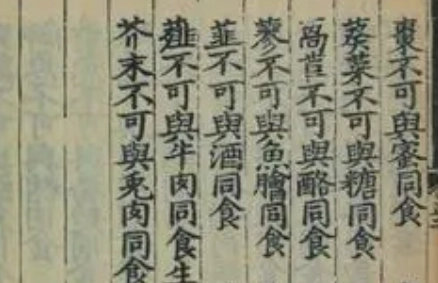 棗不可與蜜同食
葵菜不可與糖同食
萵苣不可與酪同食
蓼不可與魚膾同食
韮不可與酒同食
薤不可與牛肉同食生
芥末不可與兔肉同食